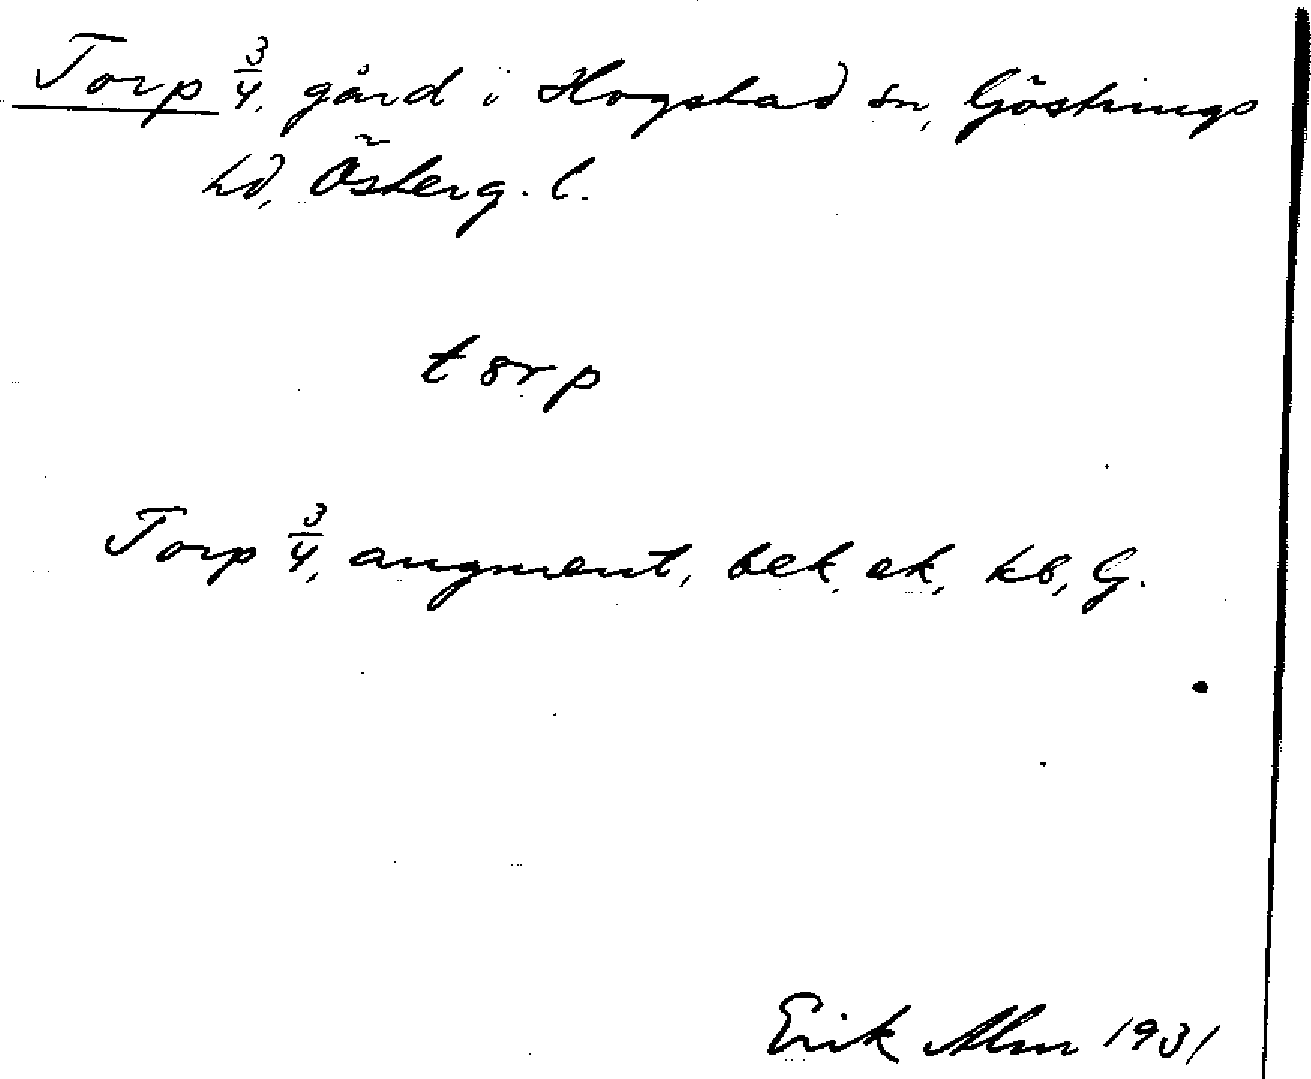 Torp 3/4, gård i Hogstad sn, Göstrings
hd, Österg. l.
torp
Torp 3/4, augment, bek, ek, kb, G.
Erik Alm 1931